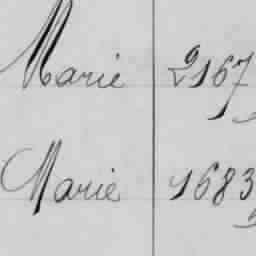 Marie 2167
Marie 1683